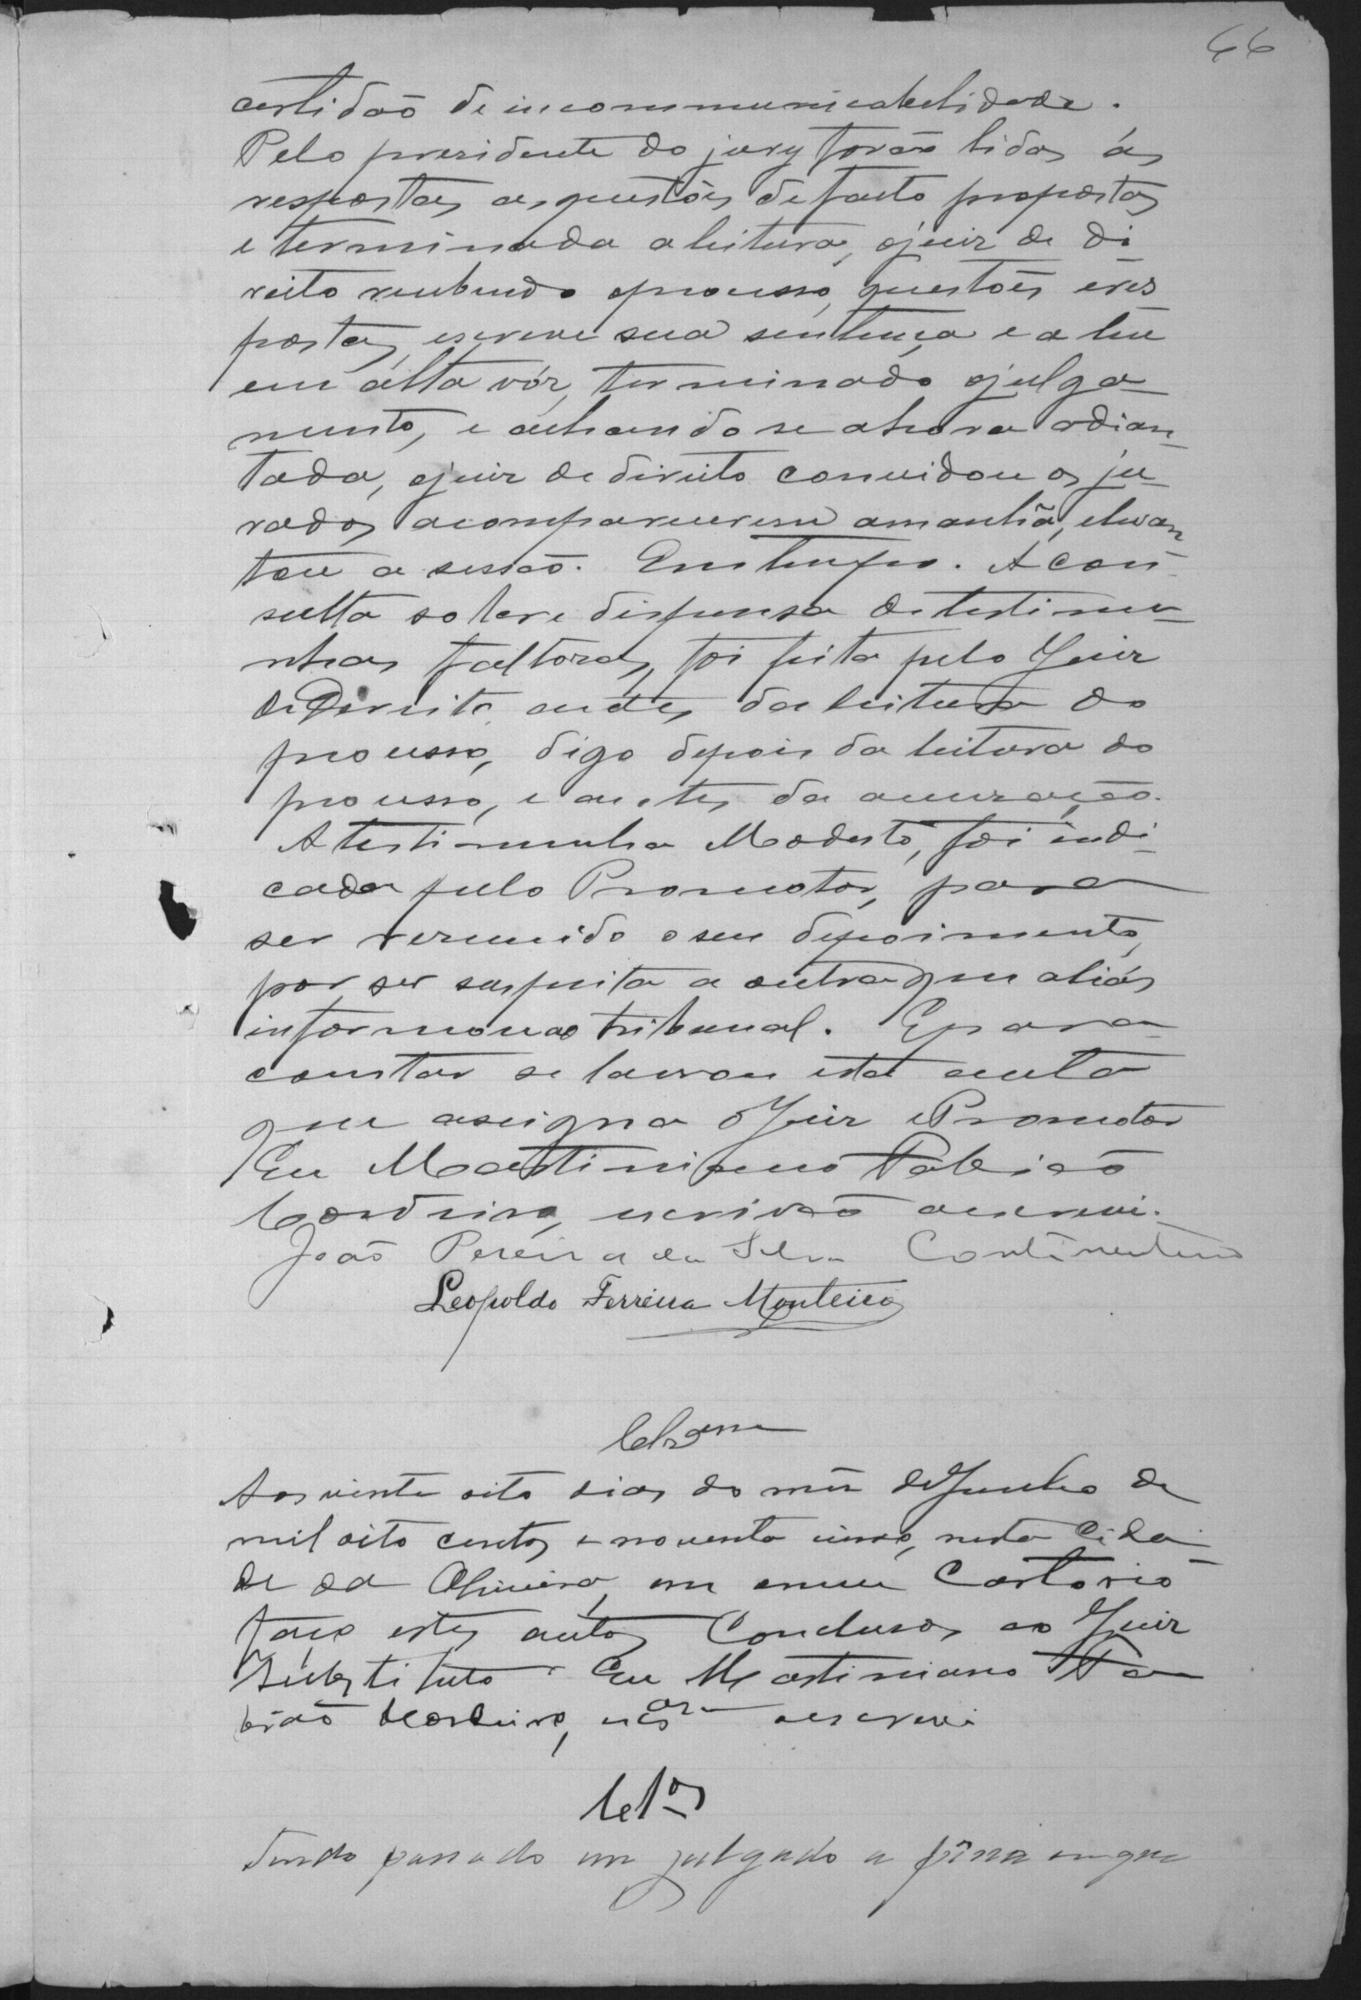 66
certidaõ de incommunicabelidade.
Pelo presidente do jury foraõ lidas ás
respostas as questões de facto propostas
e terminada a leitura, o juiz de di
reito recebendo o processo, questões e res
postas, escreve sua sentença e a leu
em alta vóz, terminado o julga-
mento, e achando se a hora adian-
tada, o juiz de direito convidou os ju-
rados a comparecerem amanhã, e levan-
tou a sessaõ. Em tempo. A con-
sulta sobre dispensa de testimu-
nhas faltosas, foi feita pelo Juiz
de Direito antes da leitura do
processo, digo depois da leitura do
processo, e antes da accusação.
A testimunha Modesto, foi indi-
cada pelo Promotor, para
ser resumido o seu depoimento,
por ser suspeita a outra que aliás
informou ao tribunal. E para
constar se lavrou esta acta
que assigna o Juiz e Promotor
Eu Martiniano Fabiaõ
Cordeiro, escrivaõ a escrevi.
João Pereira da Silva Continentino
Leopoldo Ferreira Monteiro
Clsam
Aos vinte oito dias do mez de Junho de
mil oito centos e noventa cinco, nesta Cida
de da Oliveira, em o meu Cartorio
faço estes autos Conclusos ao Juiz
Substituto. Eu Martiniano Fa
biaõ Cordeiro, escram a escrevi
Clos
Tendo passado em julgado a pena em que